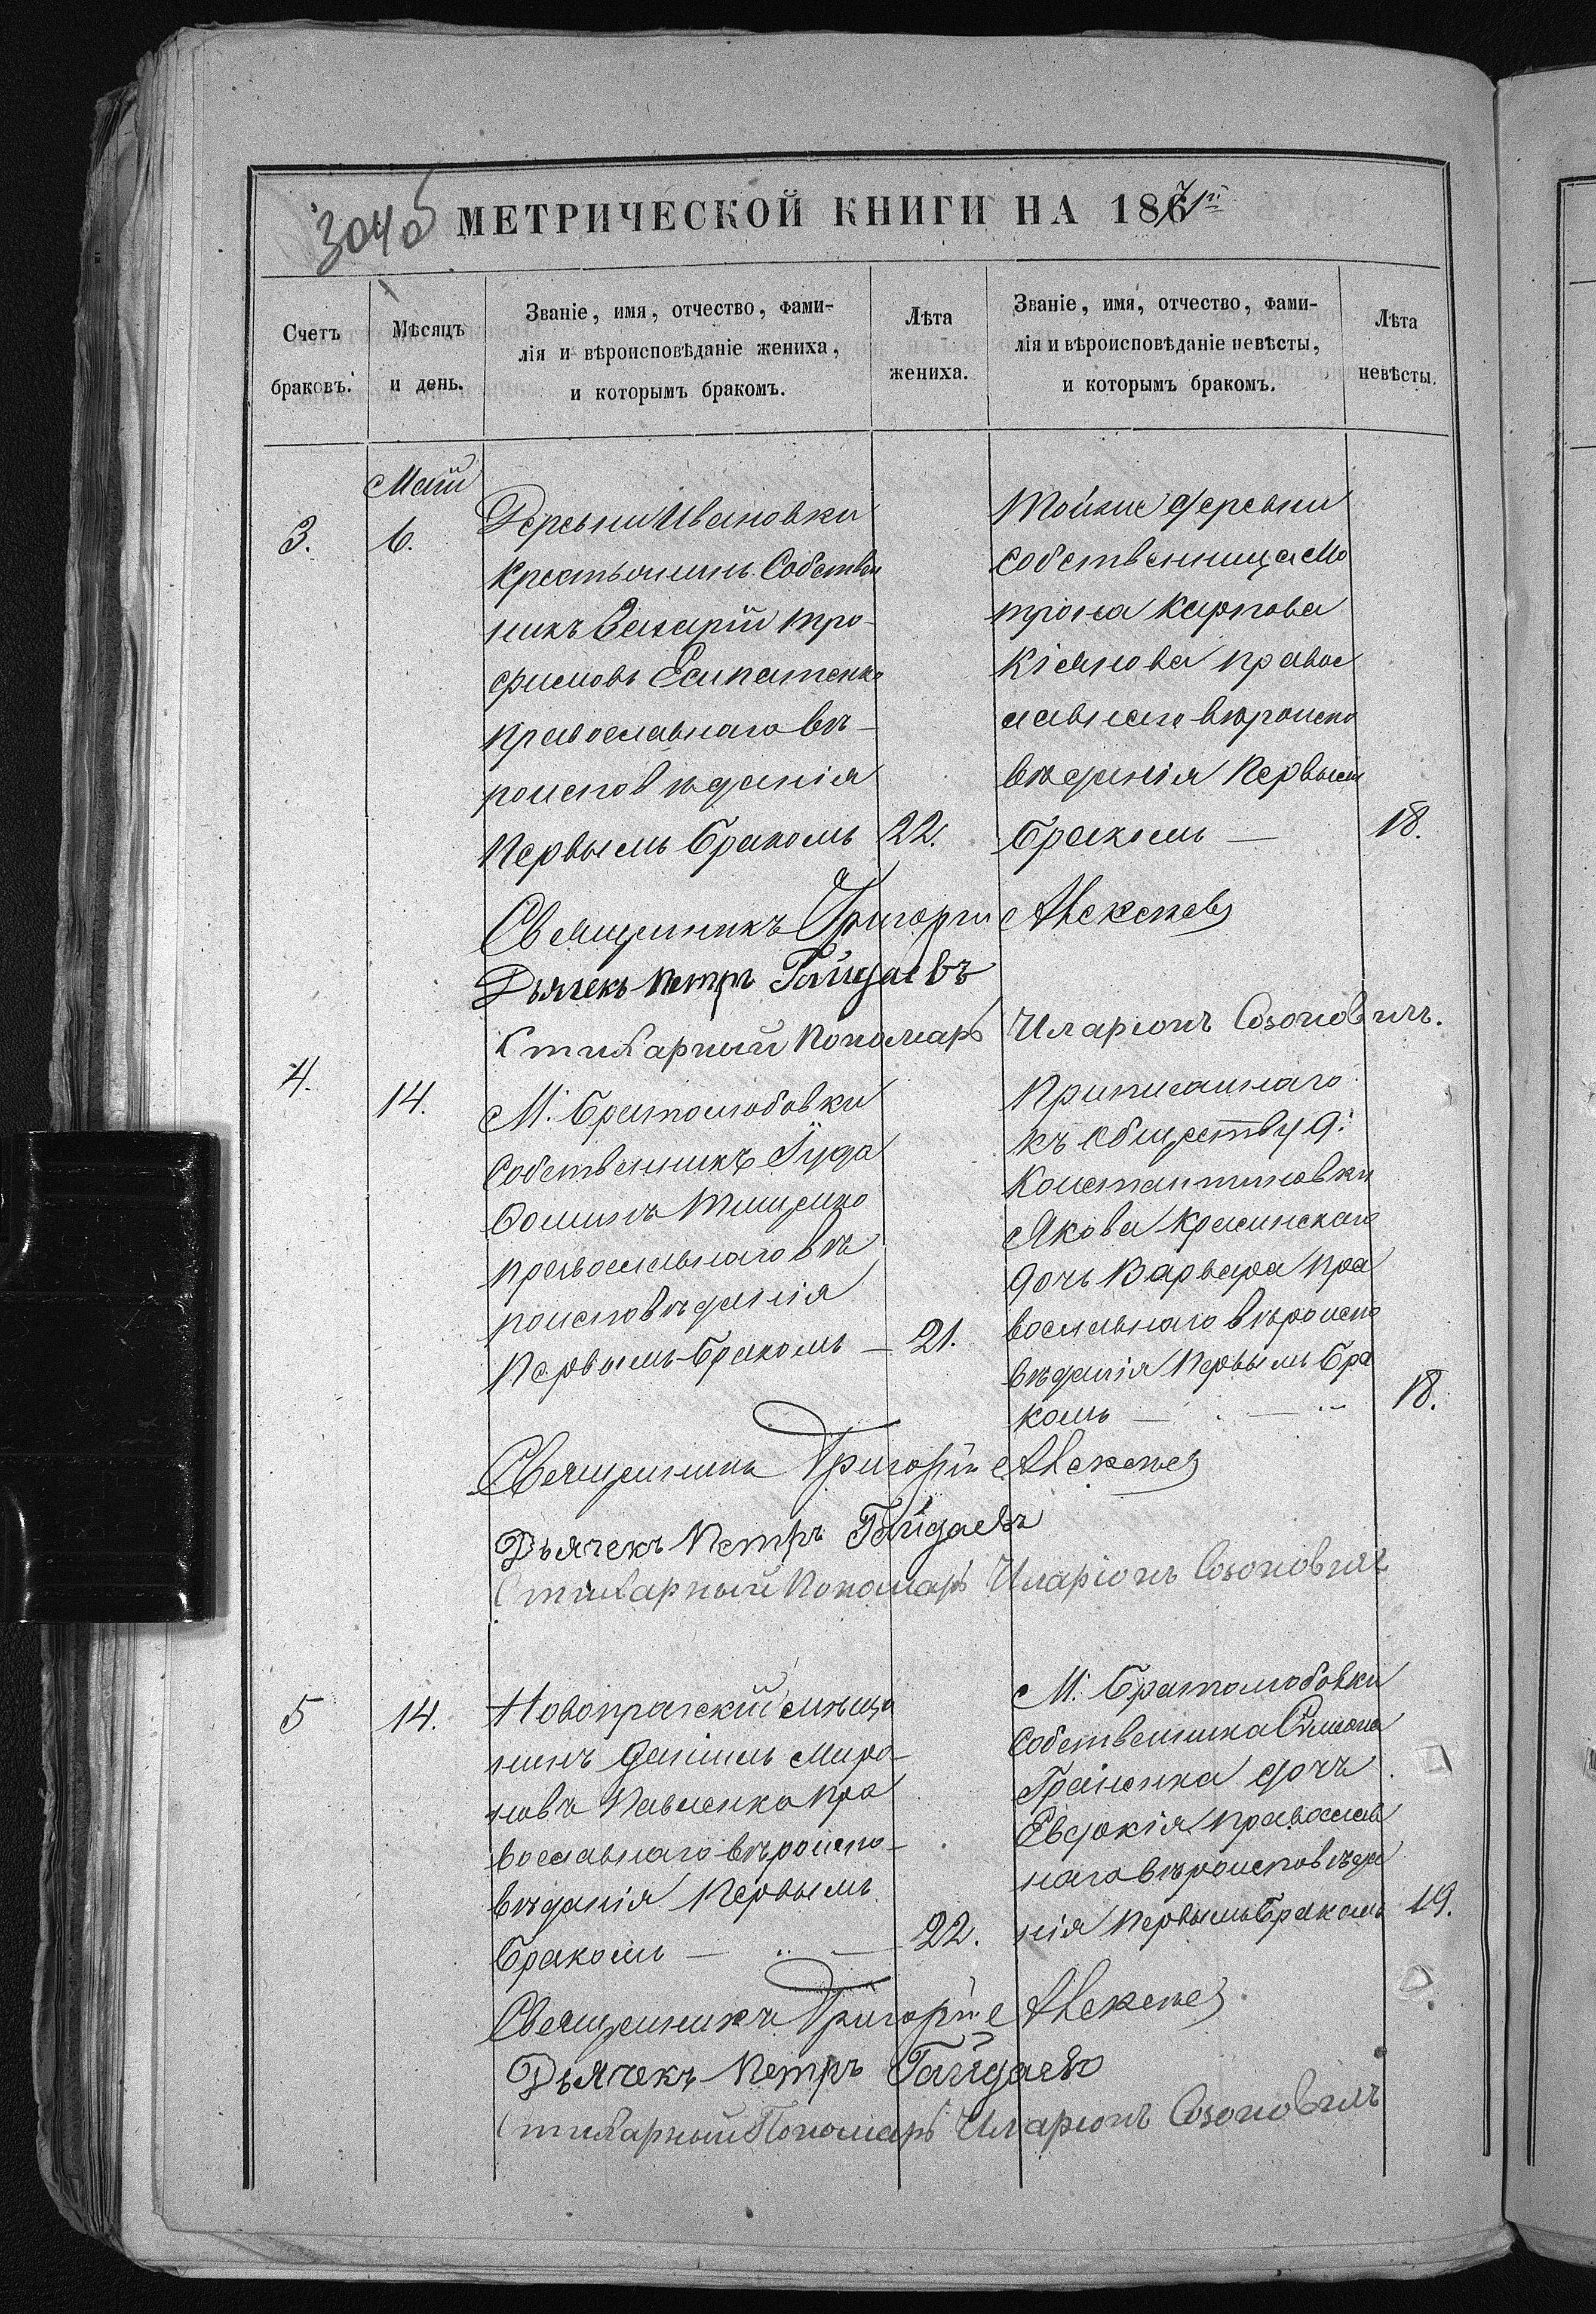 304об
МЕТРИЧЕСКОЙ КНИГИ НА 1871й
Счетъ браковъ.
Мѣсяцъ и день.
Званіе, имя, отчество, фами-
лія и вѣроисповѣданіе жениха,
и которымъ бракомъ.
Лѣта
жениха.
Званіе, имя, отчество, фами-
лія и вѣроисповѣданіе невѣсты,
и которымъ бракомъ.
Лѣта
невѣсты.
Май
3.
6.
Деревни Ивановки
крестьянинъ Собствен
никъ Захарій Тро-
фимовъ Есипатенко
православнаго вѣ-
роисповѣданія
Первымъ бракомъ
22.
Тойже деревни
собственница Мо
трона Карпова
Кіянова правос
лавнаго вѣроиспо
вѣданія Первымъ
бракомъ —
18.
Священникъ Григорій Алексѣевъ
Дьячекъ Петръ Гайдаевъ
Стихарный Пономарь Иларіонъ Созоновичъ.
4.
14.
М. Братолюбовки
Собственникъ Іуда
Фоминъ Тищенко
православнаго вѣ
роисповѣданія
Первымъ бракомъ —
21.
Приписаннаго
къ обществу д:
Константиновки
Якова Красинскаго
дочь Варвара пра
вославнаго вѣроиспо
вѣданія Первымъ бра
комъ —
18.
Священникъ Григорій Алексѣев
Дьячекъ Петръ Гайдаевъ
Стихарный Пономарь Иларіонъ Созоновичъ
5
14.
Новопражскій мѣща
нинъ Даніилъ Миро-
новъ Павленко пра
вославнаго вѣроиспо-
вѣданія Первымъ
бракомъ —
22.
М. Братолюбовки
Собственника Симона
дочь
Евдокія православ
наго вѣроисповѣда
нія Первымъ бракомъ
19.
Священникъ Григорій Алексѣев
Дьячекъ Петръ Гайдаевъ
Стихарный Пономарь Иларіонъ Созоновичъ